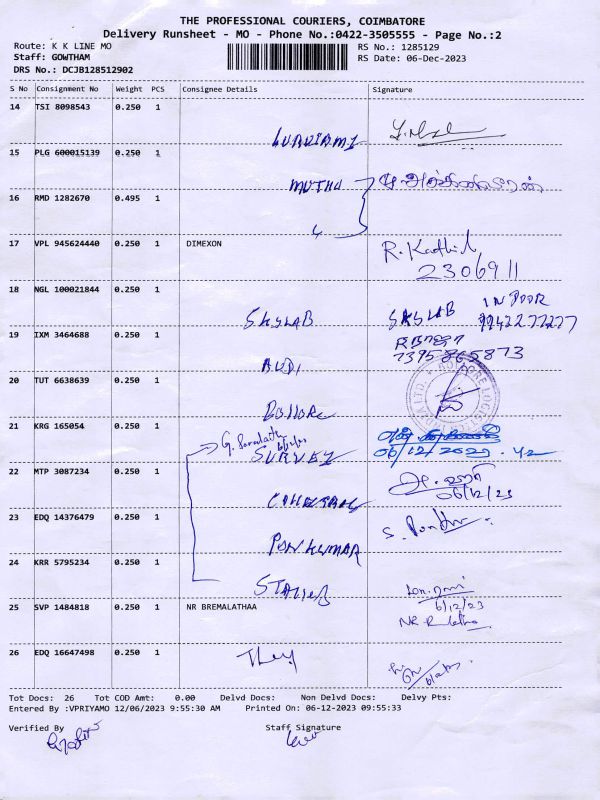 THE PROFESSIONAL COURIERS, COIMBATORE
Delivery Runsheet - MO - Phone No.:0422-3505555 - Page No.:2
Route: K K LINE MO RS No.: 1285129
Staff: GOWTHAM RS Date: 06-Dec-2023
DRS No.: DCJB128512902
S No Consignment No Weight PCS Consignee Details Signature
14 TSI 8098543 0.250 1
15 PLG 600015139 0.250 1
MUTHU
16 RMD 1282670 0.495 1
17 VPL 945624440 0.250 1 DIMEXON
R. Kathi
2306911
18 NGL 100021844 0.250 1
SKYLAB SKYLAB INDOOR
9942277277
19 IXM 3464688 0.250 1
7395865873
AUDI
20 TUT 6638639 0.250 1
21 KRG 165054 0.250 1
SURVEY 06/12/2023
22 MTP 3087234 0.250 1
06/12/23
23 EDQ 14376479 0.250 1
PONKUMAR
24 KRR 5795234 0.250 1
25 SVP 1484818 0.250 1 NR BREMALATHAA
6/12/23
26 EDQ 16647498 0.250 1
They
Tot Docs: 26 Tot COD Amt: 0.00 Delvd Docs: Non Delvd Docs: Delvy Pts:
Entered By :VPRIYAMO 12/06/2023 9:55:30 AM Printed On: 06-12-2023 09:55:33
Verified By Staff Signature